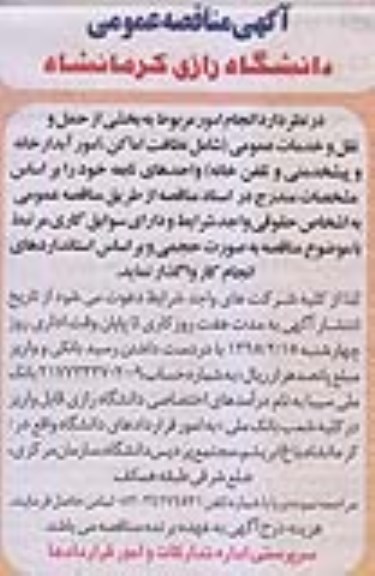 آگهی مناقصه عمومی
دانشگاه رازی کرمانشاه
در نظر دارد انجام امور مربوط به بخشی از حمل و
نقل و خدمات عمومی (شامل نظافت اماکن، امور آبدارخانه
و پیشخدمتی و تلفن خانه) واحدهای تابعه خود را بر اساس
مشخصات مندرج در اسناد مناقصه از طریق مناقصه عمومی
به اشخاص حقوقی واجد شرایط و دارای سوابق کاری مرتبط
با موضوع مناقصه به صورت حجمی و بر اساس استانداردهای
انجام کار واگذار نماید.
لذا از کلیه شرکت های واجد شرایط دعوت می شود از تاریخ
انتشار آگهی به مدت هفت روز کاری تا پایان وقت اداری روز
چهارشنبه با در دست داشتن رسید بانکی و واریز
مبلغ پانصد هزار ریال به شماره حساب بانک
ملی سیبا به نام درآمدهای اختصاصی دانشگاه رازی قابل واریز
در کلیه شعب بانک ملی، به امور قراردادهای دانشگاه واقع در:
کرمانشاه باغ ابریشم مجتمع پردیس دانشگاه سازمان مرکزی،
ضلع شرقی طبقه همکف
مراجعه نموده و یا با شماره تلفن تماس حاصل فرمایند.
هزینه درج آگهی به عهده برنده مناقصه می باشد.
سرپرستی اداره تدارکات و امور قراردادها